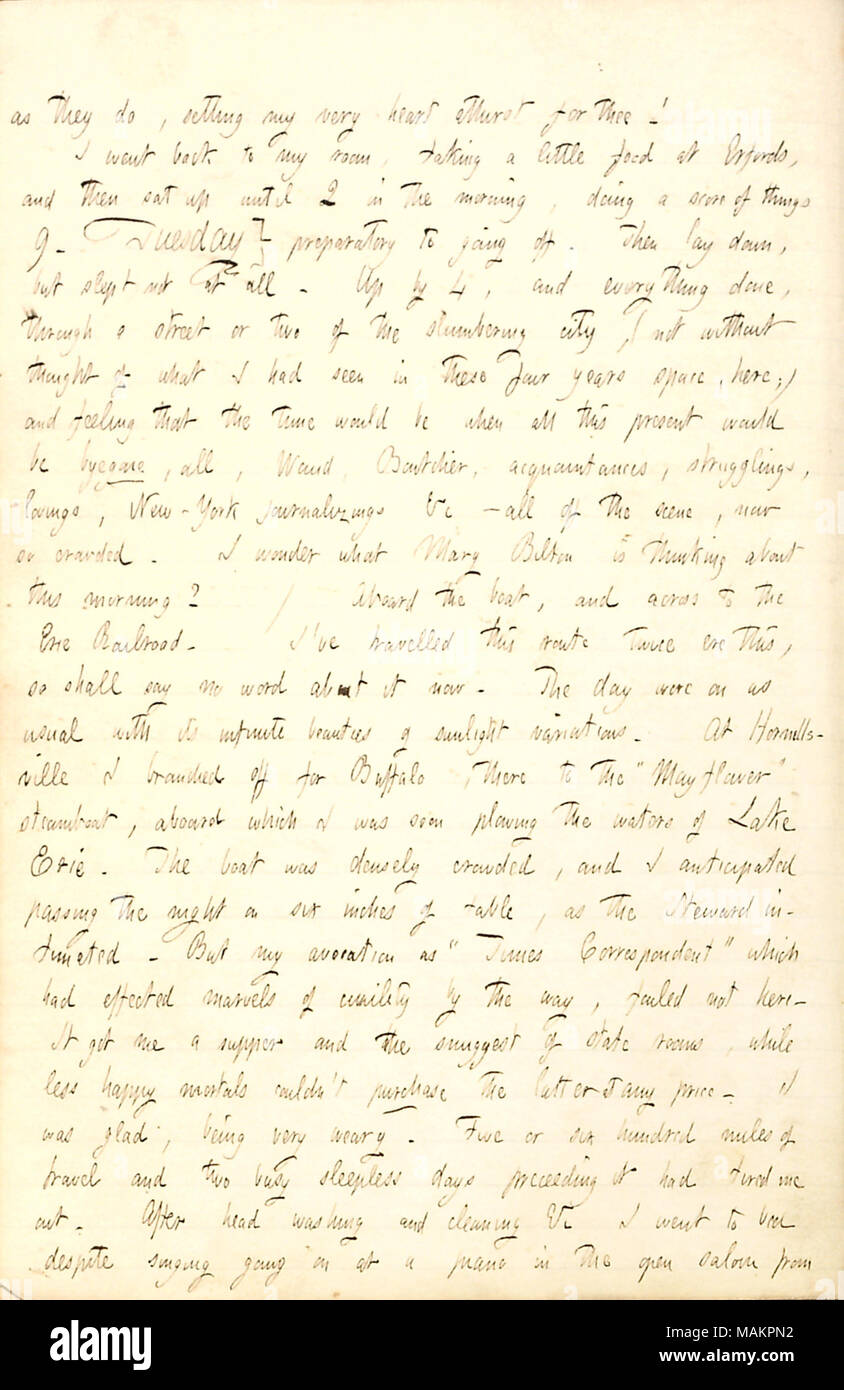 as they do, setting my very heart athirst for thee!
I went back to my room, taking a little food at Erfords,
and then sat up until 2 in the morning, doing a score of things
9. Tuesday} preparatory to going off. Then lay down,
but slept not at all. Up by 4, and everything done,
through a street or two of the slumbering city (not without
thought of what I had seen in these four years space, here;)
and feeling that the time would be when all this present would
be byegone, all, Waud, Boutcher, acquaintances, strugglings,
lovings, New-York journalizings &c — all of the scene, now
so crowded. I wonder what Mary Bilton is thinking about
this morning? / Aboard the boat, and across to the
Erie Railroad. I've travelled this route twice ere this,
so shall say no word about it now. The day wore on as
usual with its infinite beauties of sunlight variations. At Hornells-
ville I branched off for Buffalo, there to the "Mayflower"
steamboat, aboard which I was soon plowing the waters of Lake
Erie. The boat was densely crowded, and I anticipated
passing the night on six inches of table, as the Steward in-
timated. But my avocation as "Times Correspondent" which
had effected marvels of civility by the way, failed not here.
It got me a supper and the snuggest of state rooms, while
less happy mortals couldn't purchase the latter at any price. I
was glad, being very weary. Five or six hundred miles of
travel and two busy sleepless days preceeding it had tired me
out. After head washing and cleaning &c I went to bed
despite singing going on at a piano in the open saloon from
alamy
Image ID: MAKPN2
www.alamy.com